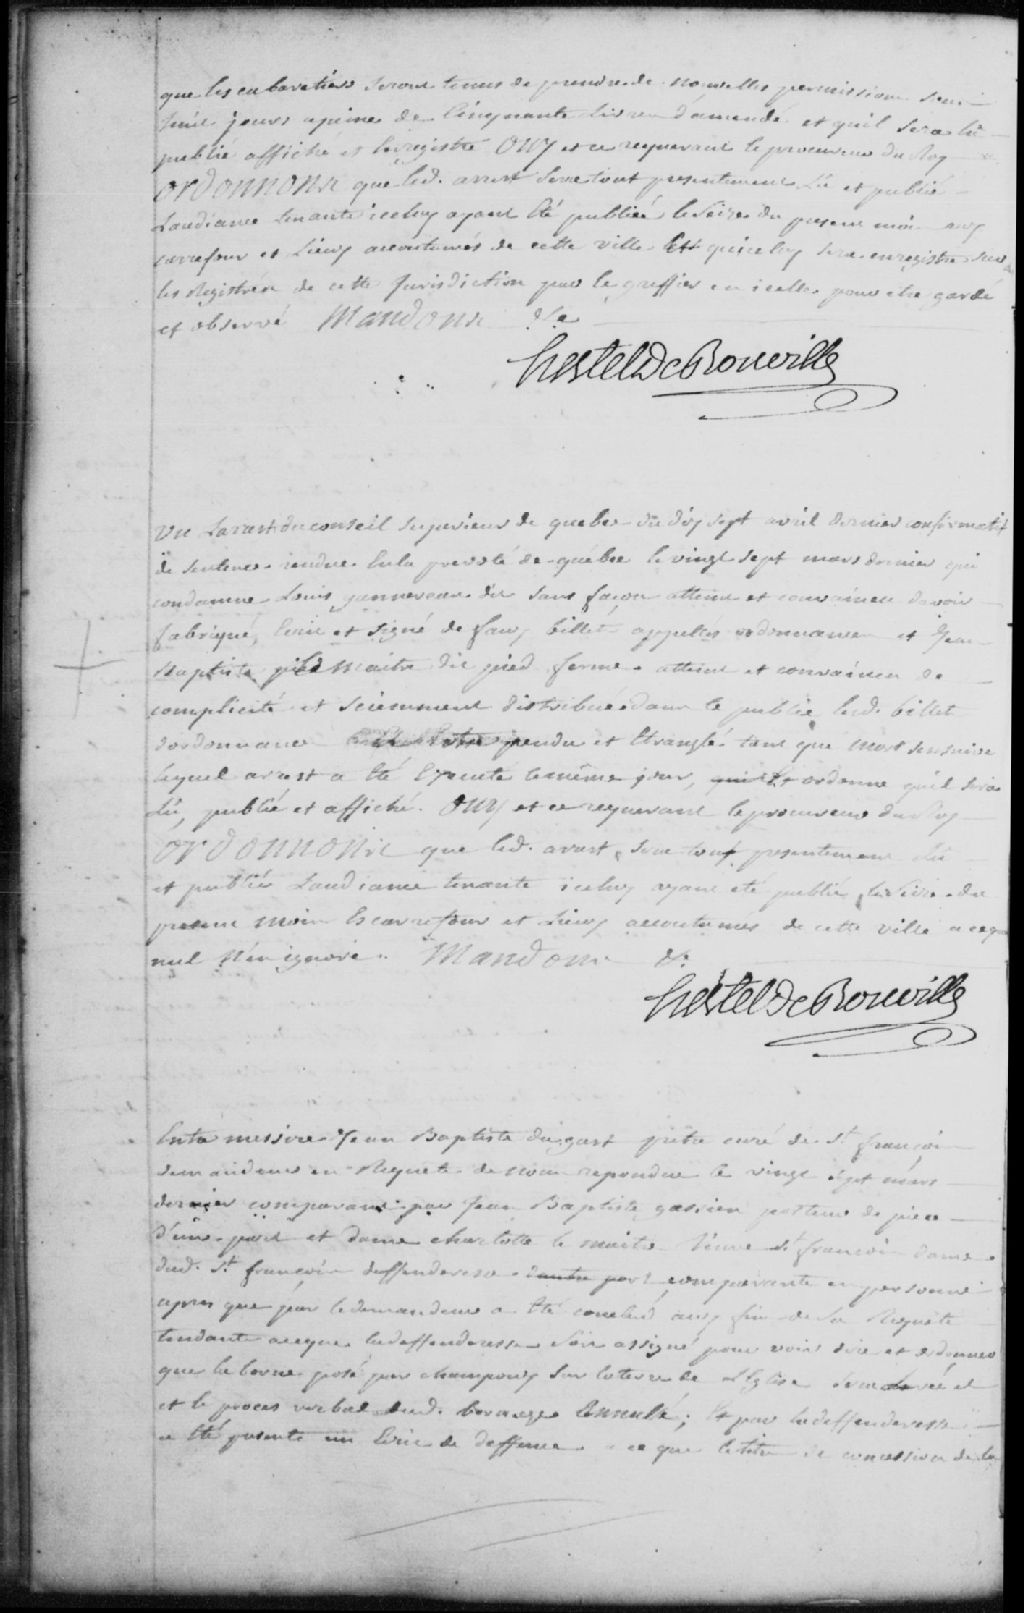 que les cabaretiers seront tenus de prendre de nouvelles permissions sous
huit jours a peine de Cinquante Livres d'amende et quil sera lû
publié affiché et Enregistré OUY et ce requerant le procureur du Roy
ORDONNONS que led. arrest sera tout presentement Lu et publié
Laudiance tenante iceluy ayant Eté publiée le seize du present mois aux
carrefour et Lieux accoutumés de cette ville Et quiceluy sera enregistré sur
les Registres de cette Jurisdiction par le greffier en icelle pour etre gardé
et observé Mandons &a
hertel De Rouville
Vu Larrest du conseil Superieur de quebec du dix sept avril dernier confirmatif
de sentence rendue En la prevosté de quebec le vingt sept mars dernier qui
condamne Louis ganneveau dit sans façon atteint et convaincu davoir
fabriqué, Ecrit et signé de faux billets appellés ordonnances et Jean
Baptiste Le Maitre dit pied ferme atteint et convaincu de
complicité et sciemment distribué dans le public lesd. billet
dordonnance pendu et Etranglé tant que mort sensuive
lequel arrest a Eté Executé le même jour, Et ordonne quil sera
Lû, publié et affiché. OUY et ce requerant le procureur du Roy
ORDONNONS que led. arrest sera tout presentement Lû
et publié Laudiance tenante iceluy ayant été publié le seize du
present mois Es carrefour et Lieux accoutumés de cette ville a ce que
nul n'en ignore. Mandons &a
hertel De Rouville
Entre messire Jean Baptiste dugast prêtre curé de St françois
demandeur en Requete de nous repondue le vingt sept mars
dernier comparant par Jean Baptiste gassien porteur de pieces
d'une part et dame charlotte le maitre Veuve St françois dame
dud. St françois deffenderesse dautre part comparante en personne
apres que par le demandeur a Eté conclud aux fins de sa Requête
tendante a ce que la deffenderesse soit assigné pour voir dire et ordonner
que la borne posé par champoux sur la terre de L'Eglise sera levée et
et le proces verbal dud. bornage annullé; Et par la deffenderesse
a Eté presenté un Ecrit de deffense a ce que le titre de concession de la